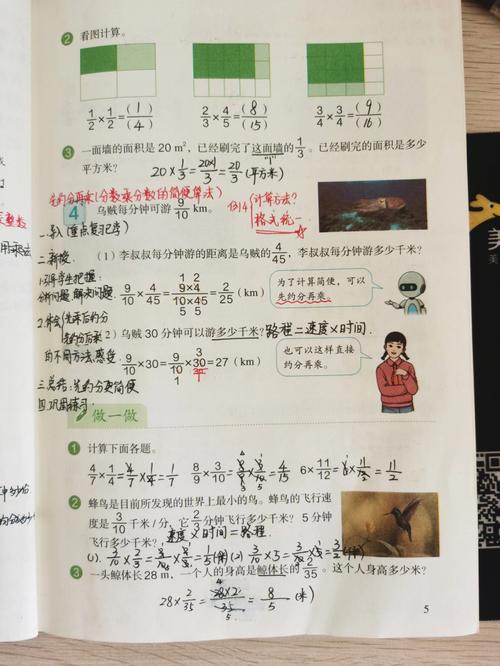 2 看图计算。
1/2×1/2=(1)/(4) 2/3×4/5=(8)/(15) 3/4×3/4=(9)/(16)
3 一面墙的面积是 20 m²，已经刷完了这面墙的1/3。已经刷完的面积是多少
平方米？ 20×1/3=20×1/3=20/3(平方米)
先约分再乘(分数乘分数的简便算法)
4 乌贼每分钟可游9/10 km。
例4 计算方法?
格式统一
一、导入(重点复习)
(1) 李叔叔每分钟游的距离是乌贼的4/45，李叔叔每分钟游多少千米？
二、新授
1.引导学生把握
分析问题，解决问题
9/10×4/45=9×4/10×45=2/25(km)
1 2
5 5
为了计算简便，可以
先约分再乘。
2.体会先乘后约分
2）乌贼 30 分钟可以游多少千米？路程=速度×时间.
的不同方法,感受
9/10×30=9/10×30=27(km)
3
1
也可以这样直接
约分再乘。
三、总结:先约分更简便
四、巩固练习
做一做
1 计算下面各题。
4/7×1/4=4/7×1/4=1/7 8/9×3/10=8/9×3/10=4/15 6×11/12=6×11/12=11/2
2 蜂鸟是目前所发现的世界上最小的鸟。蜂鸟的飞行速
度是3/10千米/分，它2/3分钟飞行多少千米？5 分钟
飞行多少千米？ 速度×时间=路程.
(1). 3/10×2/3=3/10×2/3=1/5 (2) 3/10×5=3/10×5=3/2
3 一头鲸体长 28 m，一个人的身高是鲸体长的2/35。这个人身高多少米？
28×2/35=28×2/35=8/5(米)
5
美